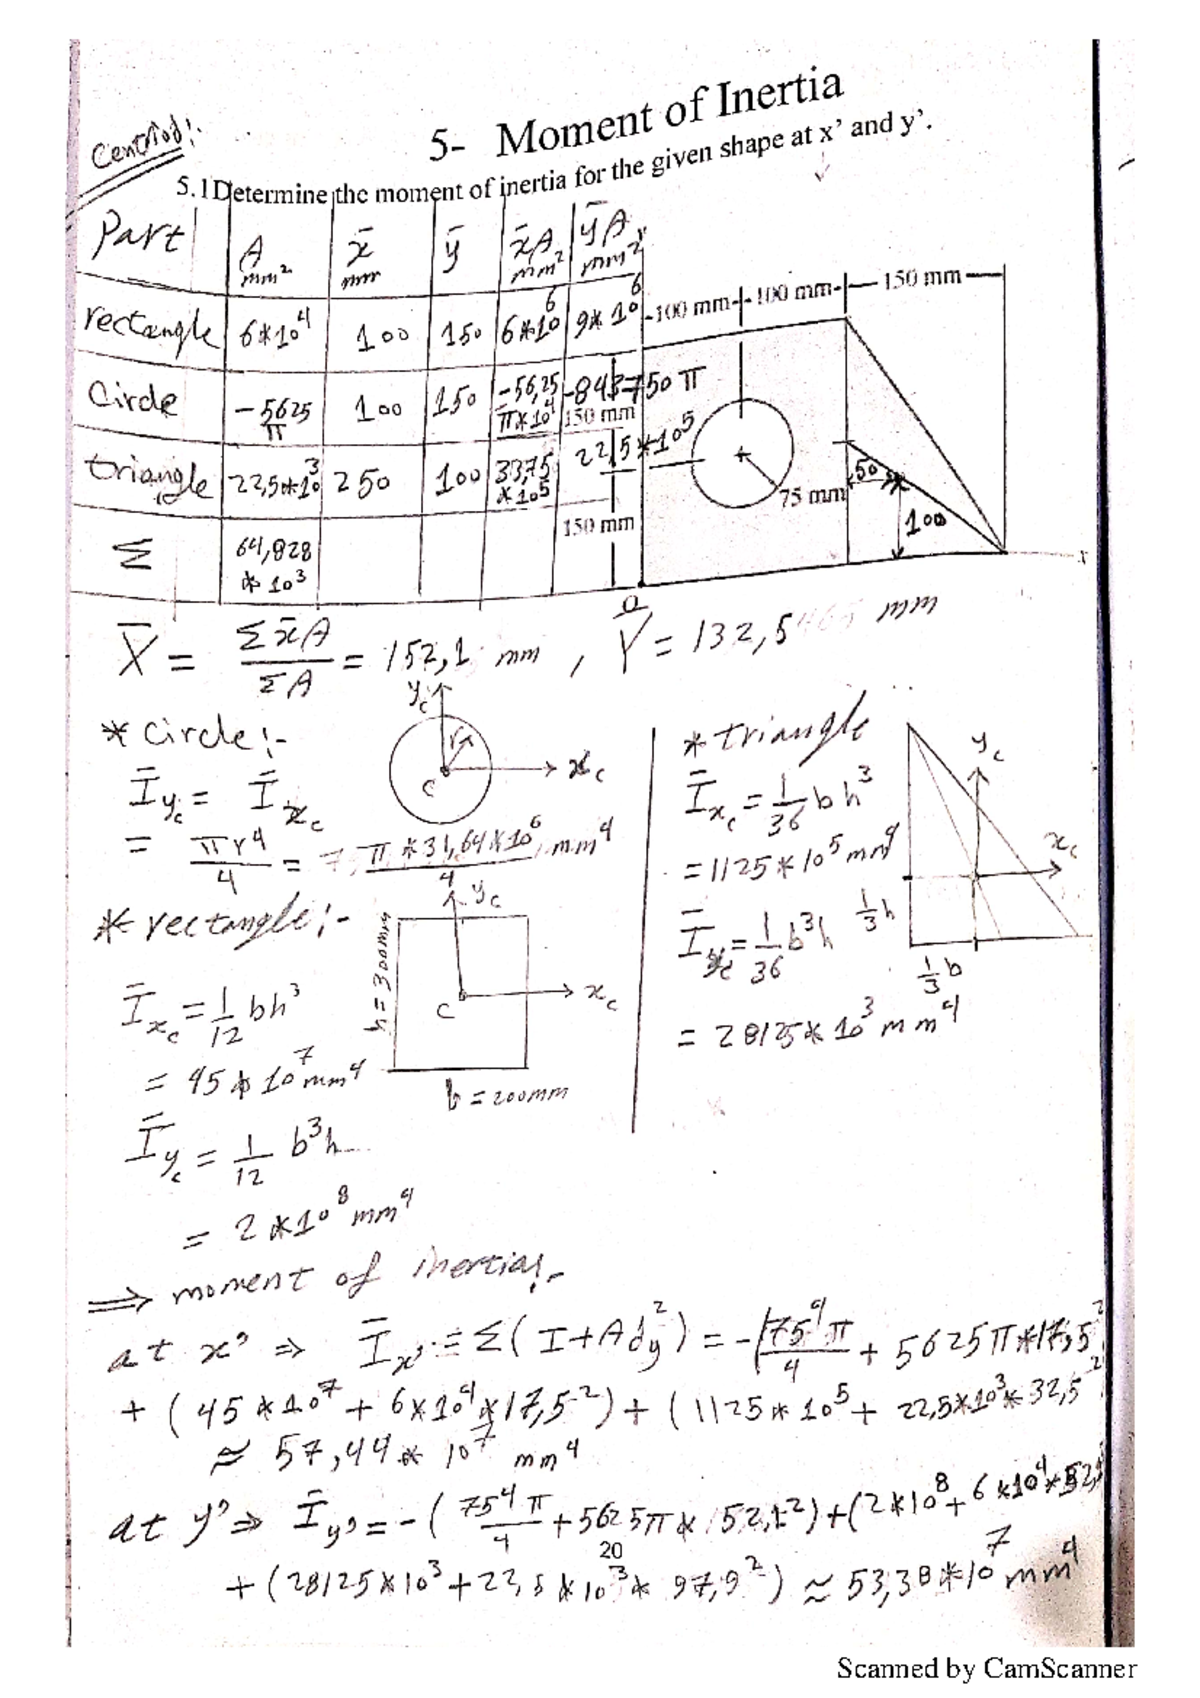 Centriod:-
5- Moment of Inertia
5.1Determine the moment of inertia for the given shape at x' and y'.
Part | A mm² | x̄ mm | ȳ | x̄A mm² | ȳA mm²
rectangle | 6*10⁴ | 100 | 150 | 6*10⁶ | 9*10⁶
Circle | -5625 π | 100 | 150 | -56,25 π*10⁴ | -843750 π
triangle | 22,5*10³ | 250 | 100 | 33,75 *10⁵ | 22,5*10⁵
Σ | 64,828 *10³
100 mm 100 mm 150 mm
150 mm
75 mm
50
100
150 mm
x
X̄ = Σx̄A / ΣA = 152,1 mm , Ȳ = 132,5465 mm
* Circle:-
Īyc = Īxc
= πr⁴/4 = π*31,64*10⁶/4 mm⁴
yc
r
c
xc
* rectangle:-
Īxc = 1/12 bh³
= 45*10⁷ mm⁴
Īyc = 1/12 b³h
= 2*10⁸ mm⁴
yc
h = 300mm
c
xc
b = 200mm
* triangle
Īxc = 1/36 bh³
= 1125*10⁵ mm⁴
Īyc = 1/36 b³h
= 28125*10³ mm⁴
yc
xc
1/3 h
1/3 b
⇒ moment of inertia:-
at x' ⇒ Īx' = Σ(I+Ady²) = -(75⁴π/4 + 5625π*17,5²
+ (45*10⁷ + 6*10⁴*17,5²) + (1125*10⁵ + 22,5*10³*32,5²
≈ 57,44*10⁷ mm⁴
at y' ⇒ Īy' = -(75⁴π/4 + 5625π*52,1²) + (2*10⁸ + 6*10⁴*52,1
20
+ (28125*10³ + 22,5*10³*97,9²) ≈ 53,38*10⁷ mm⁴
Scanned by CamScanner